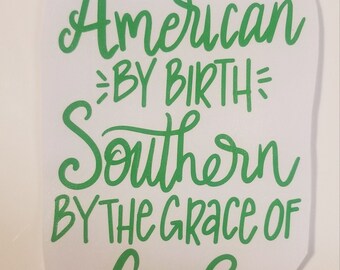 American
BY BIRTH
Southern
BY THE GRACE OF